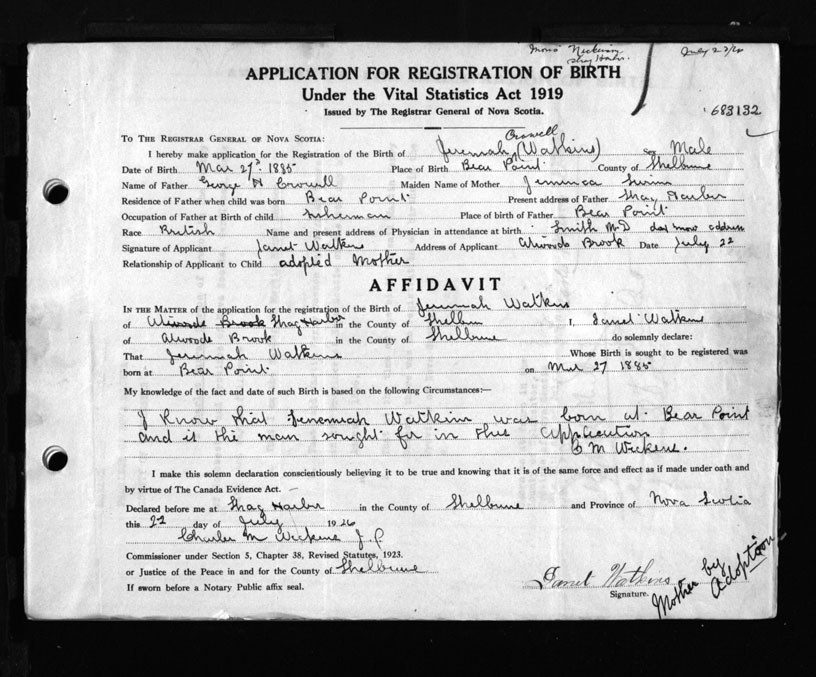 July 23/26
Shag Harbor
APPLICATION FOR REGISTRATION OF BIRTH
Under the Vital Statistics Act 1919
Issued by The Registrar General of Nova Scotia.
683132
TO THE REGISTRAR GENERAL OF NOVA SCOTIA:
Crowell
I hereby make application for the Registration of the Birth of Jeremiah (Watkins) Sex Male
Date of Birth Mar 27 1885 Place of Birth Bear Point County of Shelburne
Name of Father George H Crowell Maiden Name of Mother
Residence of Father when child was born Bear Point Present address of Father Shag Harbor
Occupation of Father at Birth of child fisherman Place of birth of Father Bear Point
Race British Name and present address of Physician in attendance at birth Smith M.D address
Signature of Applicant Janet Watkins Address of Applicant Atwoods Brook Date July 22
Relationship of Applicant to Child adopted Mother
AFFIDAVIT
IN THE MATTER of the application for the registration of the Birth of Jeremiah Watkins
of Atwoods Brook Shag Harbor in the County of Shelburn I, Janet Watkins
of Atwoods Brook in the County of Shelburne do solemnly declare:
That Jeremiah Watkins Whose Birth is sought to be registered was
born at Bear Point on Mar 27 1885
My knowledge of the fact and date of such Birth is based on the following Circumstances:—
I know that Jeremiah Watkins was born at Bear Point
and is the man sought for in this application
C M Wickens.
I make this solemn declaration conscientiously believing it to be true and knowing that it is of the same force and effect as if made under oath and
by virtue of The Canada Evidence Act.
Declared before me at Shag Harbor in the County of Shelburne and Province of Nova Scotia
this 22 day of July 1926
Charles M Wickens J.P.
Commissioner under Section 5, Chapter 38, Revised Statutes, 1923.
or Justice of the Peace in and for the County of Shelburne
If sworn before a Notary Public affix seal.
Janet Watkins
Signature.
Mother by
adoption